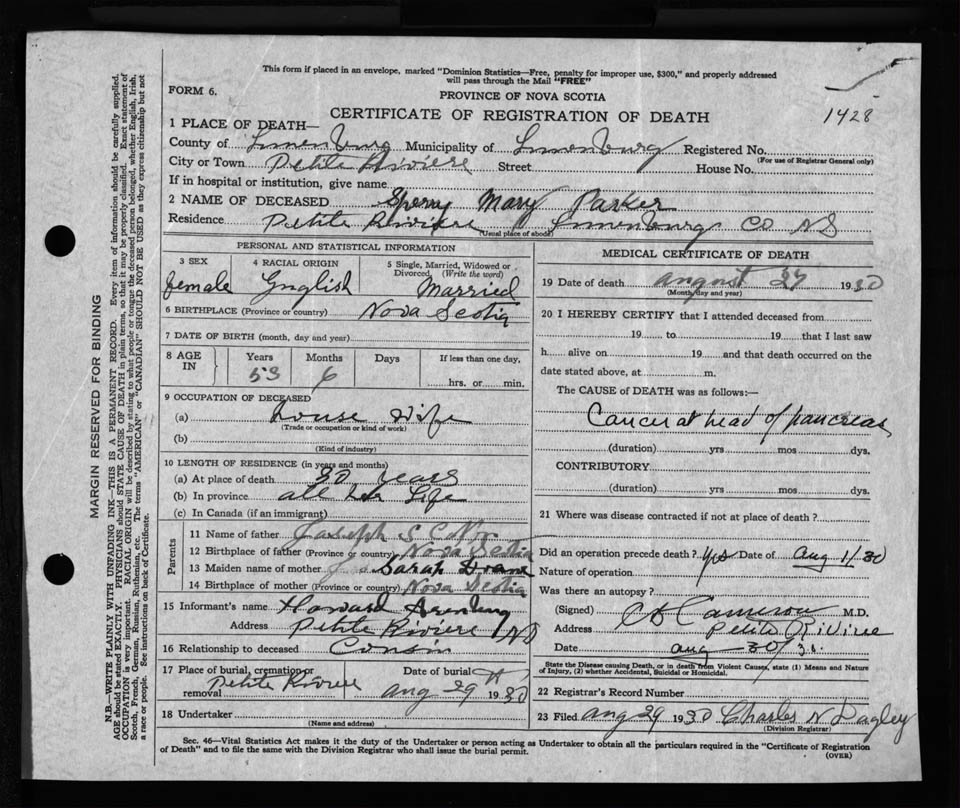 This form if placed in an envelope, marked "Dominion Statistics—Free, penalty for improper use, $300," and properly addressed
will pass through the Mail "FREE"
FORM 6.
PROVINCE OF NOVA SCOTIA
CERTIFICATE OF REGISTRATION OF DEATH
1428
1 PLACE OF DEATH—
County of Lunenburg Municipality of Lunenburg Registered No.
(For use of Registrar General only)
City or Town Petite Riviere Street House No.
If in hospital or institution, give name
2 NAME OF DECEASED Sperry Mary Parker
Residence Petite Riviere Lunenburg Co NS
(Usual place of abode)
PERSONAL AND STATISTICAL INFORMATION
3 SEX
female
4 RACIAL ORIGIN
English
5 Single, Married, Widowed or
Divorced (Write the word)
Married
6 BIRTHPLACE (Province or country) Nova Scotia
7 DATE OF BIRTH (month, day and year)
8 AGE
IN
Years Months Days If less than one day,
53 6 hrs. or min.
9 OCCUPATION OF DECEASED
(a) House Wife
(Trade or occupation or kind of work)
(b)
(Kind of industry)
10 LENGTH OF RESIDENCE (in years and months)
(a) At place of death 30 years
(b) In province all her Life
(c) In Canada (if an immigrant)
Parents
11 Name of father Joseph
12 Birthplace of father (Province or country) Nova Scotia
13 Maiden name of mother Sarah
14 Birthplace of mother (Province or country) Nova Scotia
15 Informant's name Howard
Address Petite Riviere NS
16 Relationship to deceased Cousin
17 Place of burial, cremation or
removal Petite Riviere
Date of burial
Aug 29 1930
18 Undertaker
(Name and address)
MEDICAL CERTIFICATE OF DEATH
19 Date of death August 27 1930
(Month, day and year)
20 I HEREBY CERTIFY that I attended deceased from
19 to 19 that I last saw
h alive on 19 and that death occurred on the
date stated above, at m.
The CAUSE of DEATH was as follows:
Cancer at head of pancreas
(duration) yrs mos dys.
CONTRIBUTORY
(duration) yrs mos dys.
21 Where was disease contracted if not at place of death?
Did an operation precede death? Yes Date of Aug 1/30
Nature of operation
Was there an autopsy?
(Signed) Cameron M.D.
Address Petite Riviere
Date Aug 30/30.
State the Disease causing Death, or in death from Violent Causes, state (1) Means and Nature
of Injury, (2) whether Accidental, Suicidal or Homicidal.
22 Registrar's Record Number
23 Filed Aug 29 1930 Charles N Dagley
(Division Registrar)
Sec. 46—Vital Statistics Act makes it the duty of the Undertaker or person acting as Undertaker to obtain all the particulars required in the "Certificate of Registration
of Death" and to file the same with the Division Registrar who shall issue the burial permit.
(OVER)
MARGIN RESERVED FOR BINDING
N.B.—WRITE PLAINLY WITH UNFADING INK—THIS IS A PERMANENT RECORD. Every item of information should be carefully supplied.
AGE should be stated EXACTLY. PHYSICIANS should STATE CAUSE OF DEATH in plain terms, so that it may be properly classified. Exact statement of
OCCUPATION is very important. RACIAL ORIGIN will be described by stating to what people or tongue the deceased person belonged, whether English, Irish,
Scotch, French, German, Russian, Ruthenian, etc. The terms "AMERICAN" or "CANADIAN" SHOULD NOT BE USED as they express citizenship but not
a race or people. See instructions on back of Certificate.